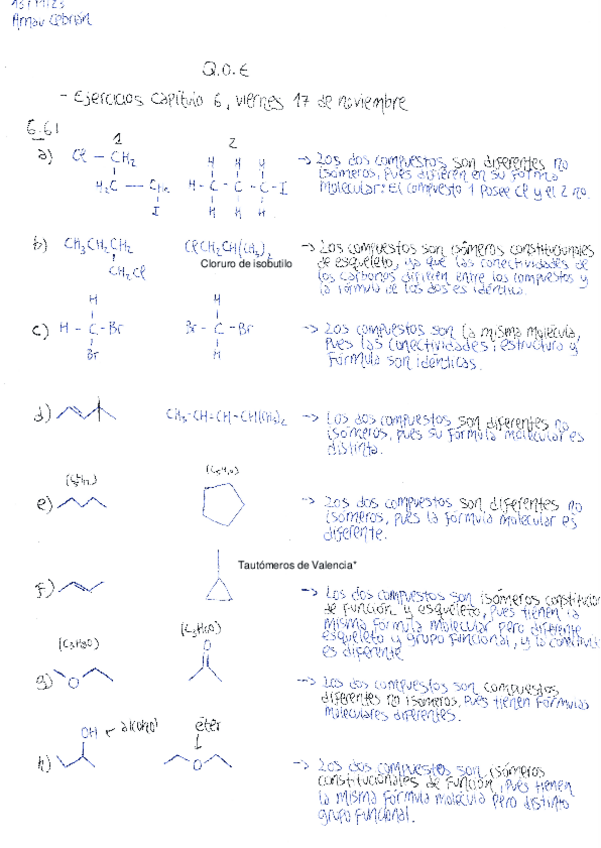 13/11/23
Arnau Cebrián
Q.O.E
- Ejercicios capítulo 6, viernes 17 de noviembre
6.61
1 2
a) Cl - CH2
H2C - I
H H H
H - C - C - C - I
H H H
-> Los dos compuestos son diferentes no
isómeros, pues difieren en su fórmula
molecular: El compuesto 1 posee Cl y el 2 no.
b) CH3CH2CH2
CH2Cl
ClCH2CH(CH3)2
Cloruro de isobutilo
-> Los compuestos son isómeros constitucionales
de esqueleto, ya que las conectividades de
los carbonos difieren entre los compuestos y
la fórmula de los dos es idéntica.
c) H
H - C - Br
Br
H
Br - C - Br
H
-> Los compuestos son la misma molécula,
pues las conectividades, estructura y
fórmula son idénticas.
d) CH3-CH=CH-CH(CH3)2
-> Los dos compuestos son diferentes no
isómeros, pues su fórmula molecular es
distinta.
e)
-> Los dos compuestos son diferentes no
isómeros, pues la fórmula molecular es
diferente.
Tautómeros de Valencia*
f)
-> Los dos compuestos son isómeros
de función y esqueleto, pues tienen la
misma fórmula molecular pero diferente
esqueleto y grupo funcional, y la
es diferente
g) (C3H8O) O
(C3H6O) O
-> Los dos compuestos son compuestos
diferentes no isómeros, pues tienen fórmulas
moleculares diferentes.
h) OH <- alcohol
éter
O
-> Los dos compuestos son isómeros
constitucionales de función, pues tienen
la misma fórmula molecula pero distinto
grupo funcional.